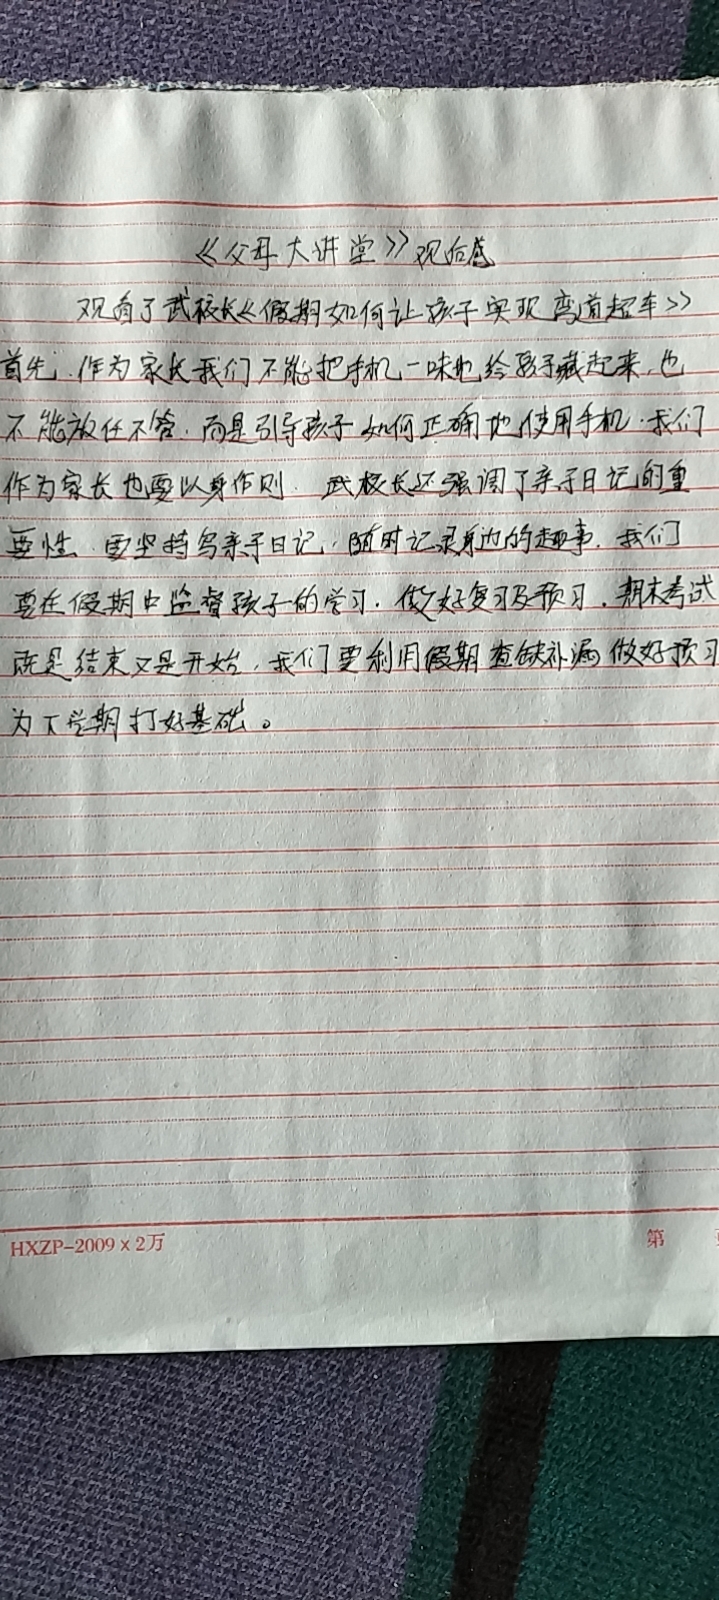 《父母大讲堂》观后感
观看了武校长《假期如何让孩子实现弯道超车》
首先.作为家长我们不能把手机一味地给孩子藏起来.也
不能放任不管.而是引导孩子如何正确地使用手机.我们
作为家长也要以身作则.武校长还强调了亲子日记的重
要性.要坚持写亲子日记.随时记录身边的趣事.我们
要在假期中监督孩子的学习.做好复习及预习.期末考试
既是结束又是开始.我们要利用假期查缺补漏做好预习
为下学期打好基础。
HXZP-2009×2万
第